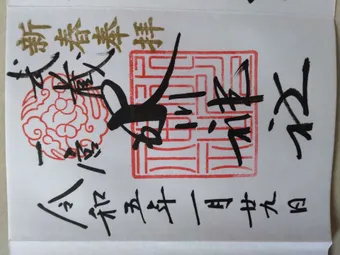 新春奉拝
武蔵
一宮
氷川神社
令和五年一月廿九日